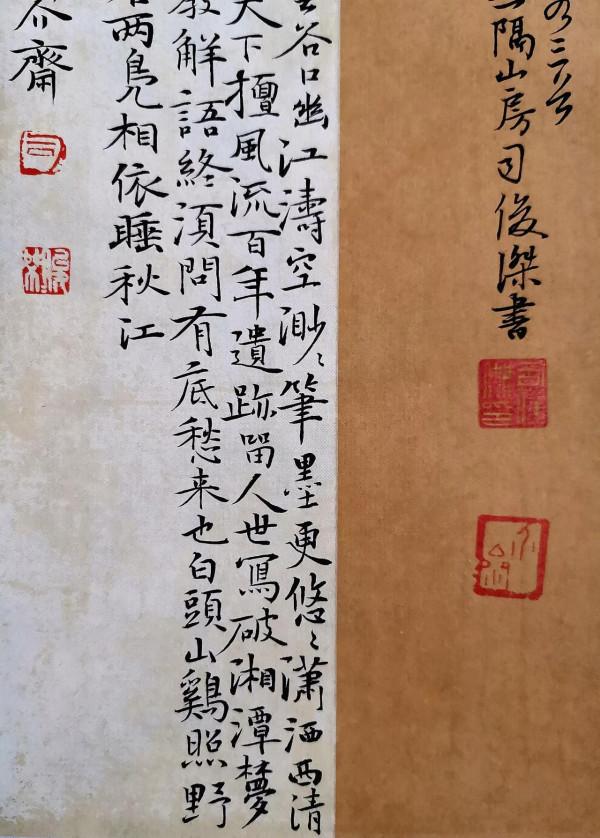 隅山房司俊傑書
谷口幽江濤空渺々筆墨更悠々瀟洒西清
天下擅風流百年遺跡留人世寫破湘潭夢
解語終須問有底愁来也白頭山鷄照野
两鳧相依睡秋江
介齋
司
俊傑